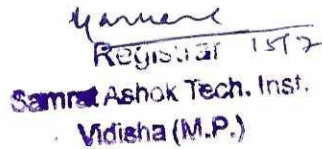 Registrar 15/7
Samrat Ashok Tech. Inst.
Vidisha (M.P.)